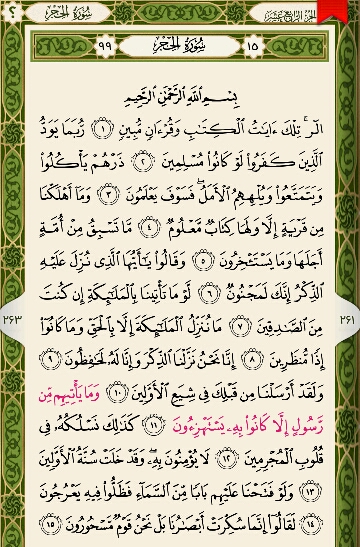 سُورَةُ الحِجْرِ
الجُزءُ الرَّابِعَ عَشَرَ
٩٩ سُورَةُ الحِجْرِ ١٥
بِسْمِ ٱللَّهِ ٱلرَّحْمَٰنِ ٱلرَّحِيمِ
الٓر ۚ تِلْكَ ءَايَٰتُ ٱلْكِتَٰبِ وَقُرْءَانٍ مُّبِينٍ ١ رُّبَمَا يَوَدُّ
ٱلَّذِينَ كَفَرُوا۟ لَوْ كَانُوا۟ مُسْلِمِينَ ٢ ذَرْهُمْ يَأْكُلُوا۟
وَيَتَمَتَّعُوا۟ وَيُلْهِهِمُ ٱلْأَمَلُ ۖ فَسَوْفَ يَعْلَمُونَ ٣ وَمَآ أَهْلَكْنَا
مِن قَرْيَةٍ إِلَّا وَلَهَا كِتَابٌ مَّعْلُومٌ ٤ مَّا تَسْبِقُ مِنْ أُمَّةٍ
أَجَلَهَا وَمَا يَسْتَـْٔخِرُونَ ٥ وَقَالُوا۟ يَٰٓأَيُّهَا ٱلَّذِى نُزِّلَ عَلَيْهِ
ٱلذِّكْرُ إِنَّكَ لَمَجْنُونٌ ٦ لَّوْ مَا تَأْتِينَا بِٱلْمَلَٰٓئِكَةِ إِن كُنتَ
مِنَ ٱلصَّٰدِقِينَ ٧ مَا نُنَزِّلُ ٱلْمَلَٰٓئِكَةَ إِلَّا بِٱلْحَقِّ وَمَا كَانُوٓا۟
إِذًا مُّنظَرِينَ ٨ إِنَّا نَحْنُ نَزَّلْنَا ٱلذِّكْرَ وَإِنَّا لَهُۥ لَحَٰفِظُونَ ٩
وَلَقَدْ أَرْسَلْنَا مِن قَبْلِكَ فِى شِيَعِ ٱلْأَوَّلِينَ ١٠ وَمَا يَأْتِيهِم مِّن
رَّسُولٍ إِلَّا كَانُوا۟ بِهِۦ يَسْتَهْزِءُونَ ١١ كَذَٰلِكَ نَسْلُكُهُۥ فِى
قُلُوبِ ٱلْمُجْرِمِينَ ١٢ لَا يُؤْمِنُونَ بِهِۦ ۖ وَقَدْ خَلَتْ سُنَّةُ ٱلْأَوَّلِينَ
١٣ وَلَوْ فَتَحْنَا عَلَيْهِم بَابًا مِّنَ ٱلسَّمَآءِ فَظَلُّوا۟ فِيهِ يَعْرُجُونَ
١٤ لَقَالُوٓا۟ إِنَّمَا سُكِّرَتْ أَبْصَٰرُنَا بَلْ نَحْنُ قَوْمٌ مَّسْحُورُونَ ١٥
٢٦٣
٢٦١
؟